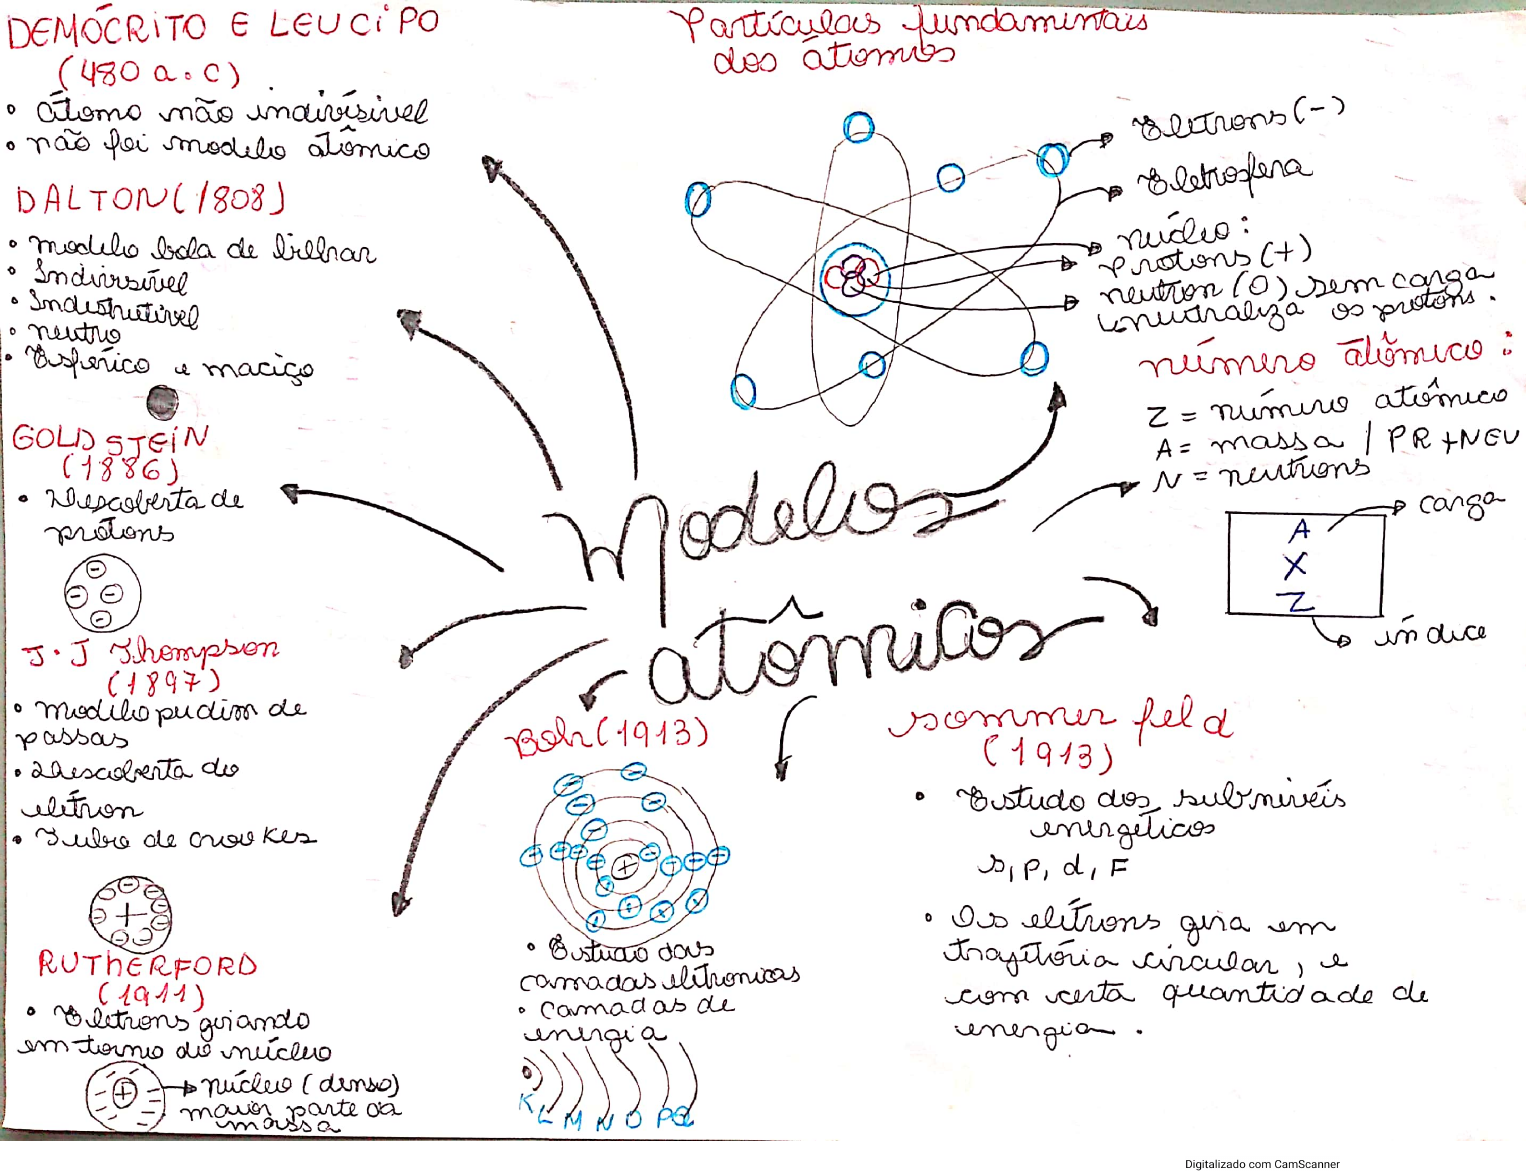 DEMÓCRITO E LEUCIPO
(480 a.c)
• átomo não indivísivel
• não foi modelo atômico
DALTON (1808)
• modelo bola de bilhar
• Indivisível
• Indestrutível
• neutro
• Esférico e maciço
GOLDSTEIN
(1886)
• Descoberta de
protons
J.J Thompson
(1897)
• modelo pudim de
passas
• Descoberta do
elétron
• Tubo de crookes
RUTHERFORD
(1911)
• Eletrons girando
em torno do núcleo
núcleo (denso)
maior parte da
massa
Partículas fundamentais
dos átomos
Eletrons (-)
Eletrosfera
núcleo:
Protons (+)
neutron (0) sem carga
neutraliza os protons.
número atômico:
Z = número atômico
A = massa / PR + NEU
N = neutrons
A
X
Z
carga
índice
Modelos
atômicos
Bohr (1913)
• Estudo das
camadas eletronicas
• camadas de
energia
K L M N O P Q
sommerfeld
(1913)
• Estudo dos subniveís
energéticos
s, p, d, F
• Os elétrons gira em
trajetória circular, e
com certa quantidade de
energia.
Digitalizado com CamScanner